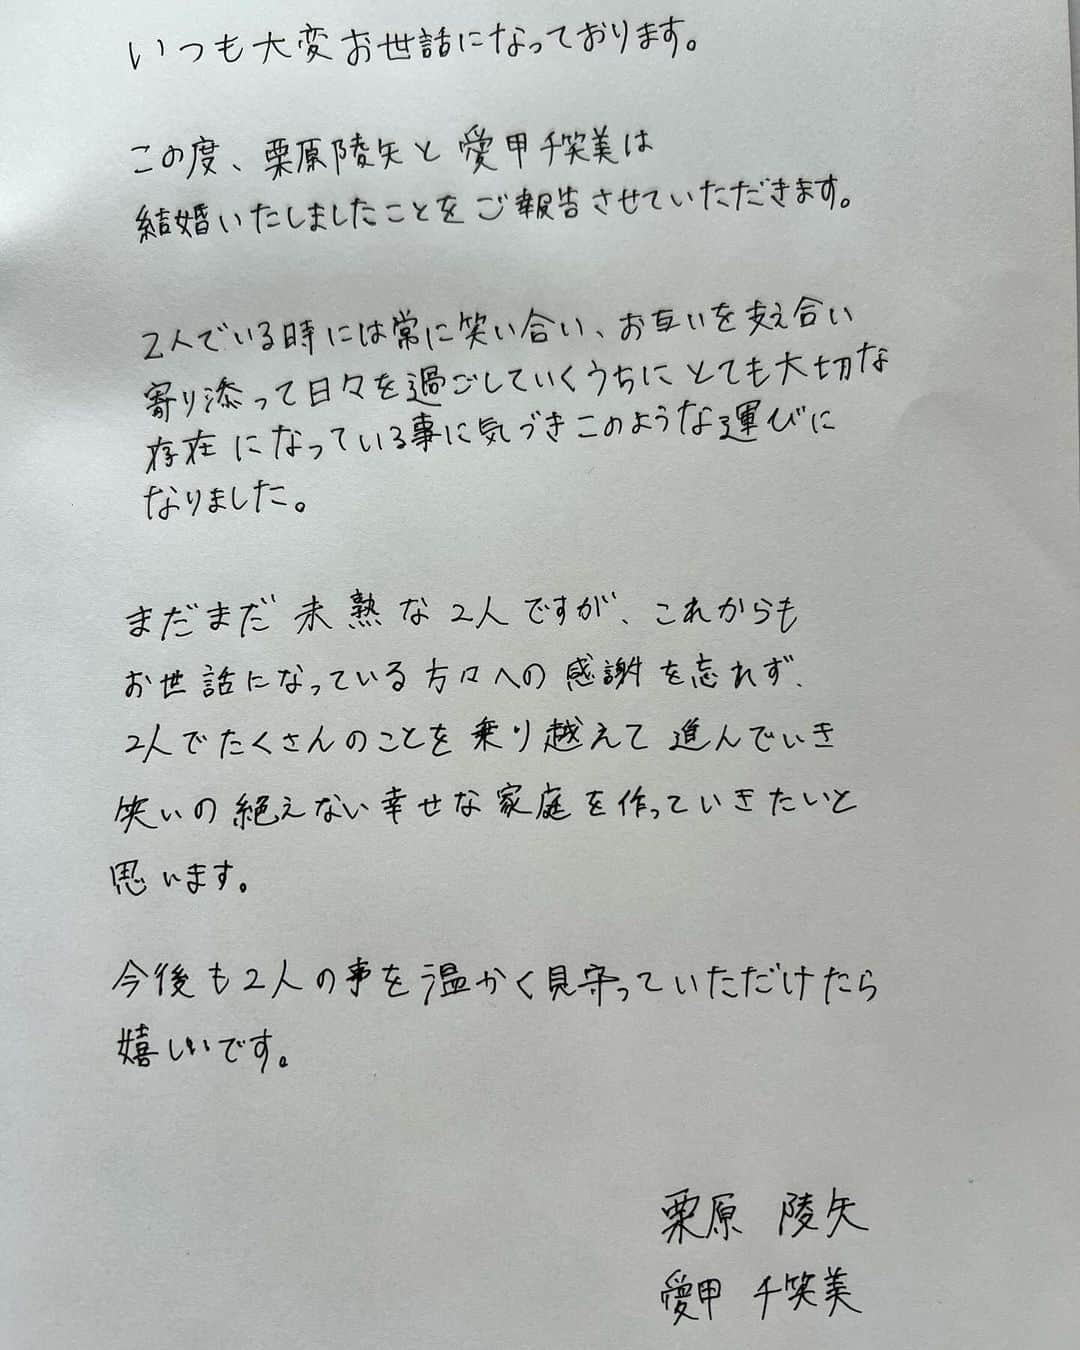 いつも大変お世話になっております。
この度、栗原陵矢と愛甲千笑美は
結婚いたしましたことをご報告させていただきます。
2人でいる時には常に笑い合い、お互いを支え合い
寄り添って日々を過ごしていくうちにとても大切な
存在になっている事に気づきこのような運びに
なりました。
まだまだ未熟な2人ですが、これからも
お世話になっている方々への感謝を忘れず、
2人でたくさんのことを乗り越えて進んでいき
笑いの絶えない幸せな家庭を作っていきたいと
思います。
今後も2人の事を温かく見守っていただけたら
嬉しいです。
栗原 陵矢
愛甲 千笑美